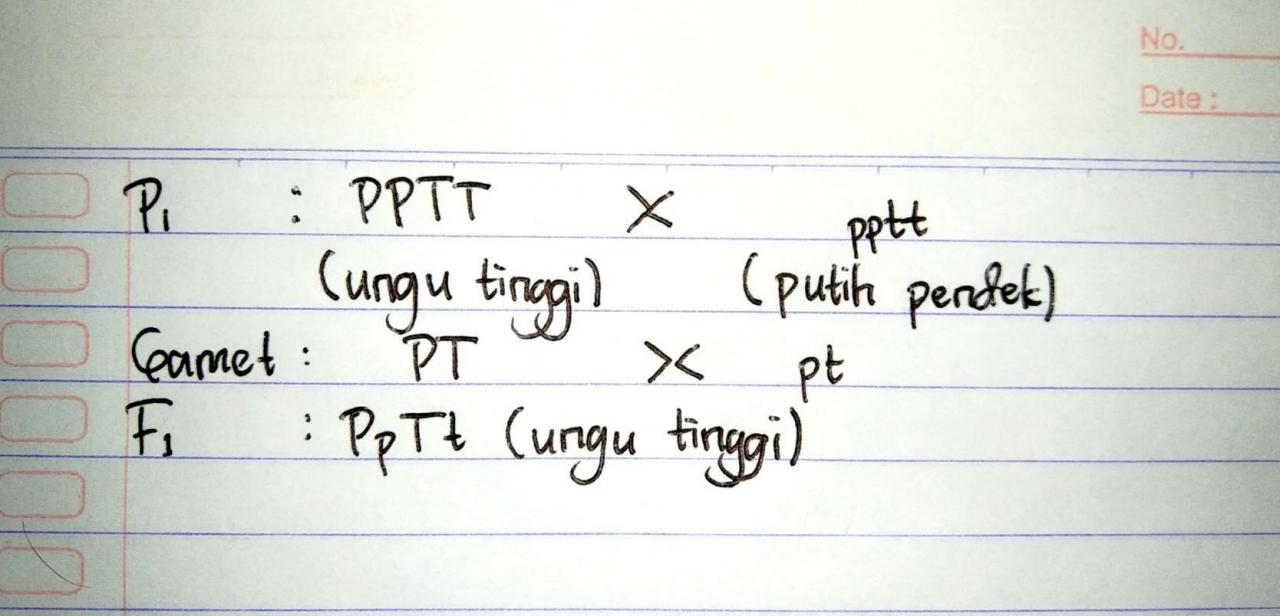 No.
Date :
P₁ : PPTT X pptt
(ungu tinggi) (putih pendek)
Gamet : PT X pt
F₁ : PpTt (ungu tinggi)